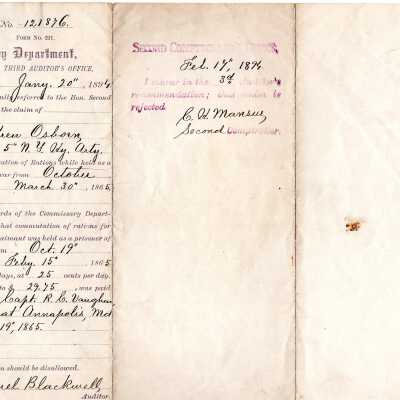 No. 121876.
Form No. 221.
ry Department,
THIRD AUDITOR'S OFFICE,
Jany. 20" , 1894
referred to the Hon. Second
the claim of
rew Osborn,
5" N.Y. Hy. Arty.
ation of Rations while held as
war from October
March 30" , 1865,
rds of the Commissary Depart-
hat commutation of rations for
aimant was held as a prisoner of
m Oct. 19"
Feby. 15" 1865
days, at 25 cents per day.
to $ 29.75, was paid
Capt. R. C. Vaughn,
at Annapolis, Md
19", 1865.
n should be disallowed.
uel Blackwell,
Auditor.
SECOND COMPTROLLER'S OFFICE,
Feb. 17", 1894
I concur in the 3rd Auditor's
recommendation; is
rejected.
C. H. Mansur,
Second Comptroller.